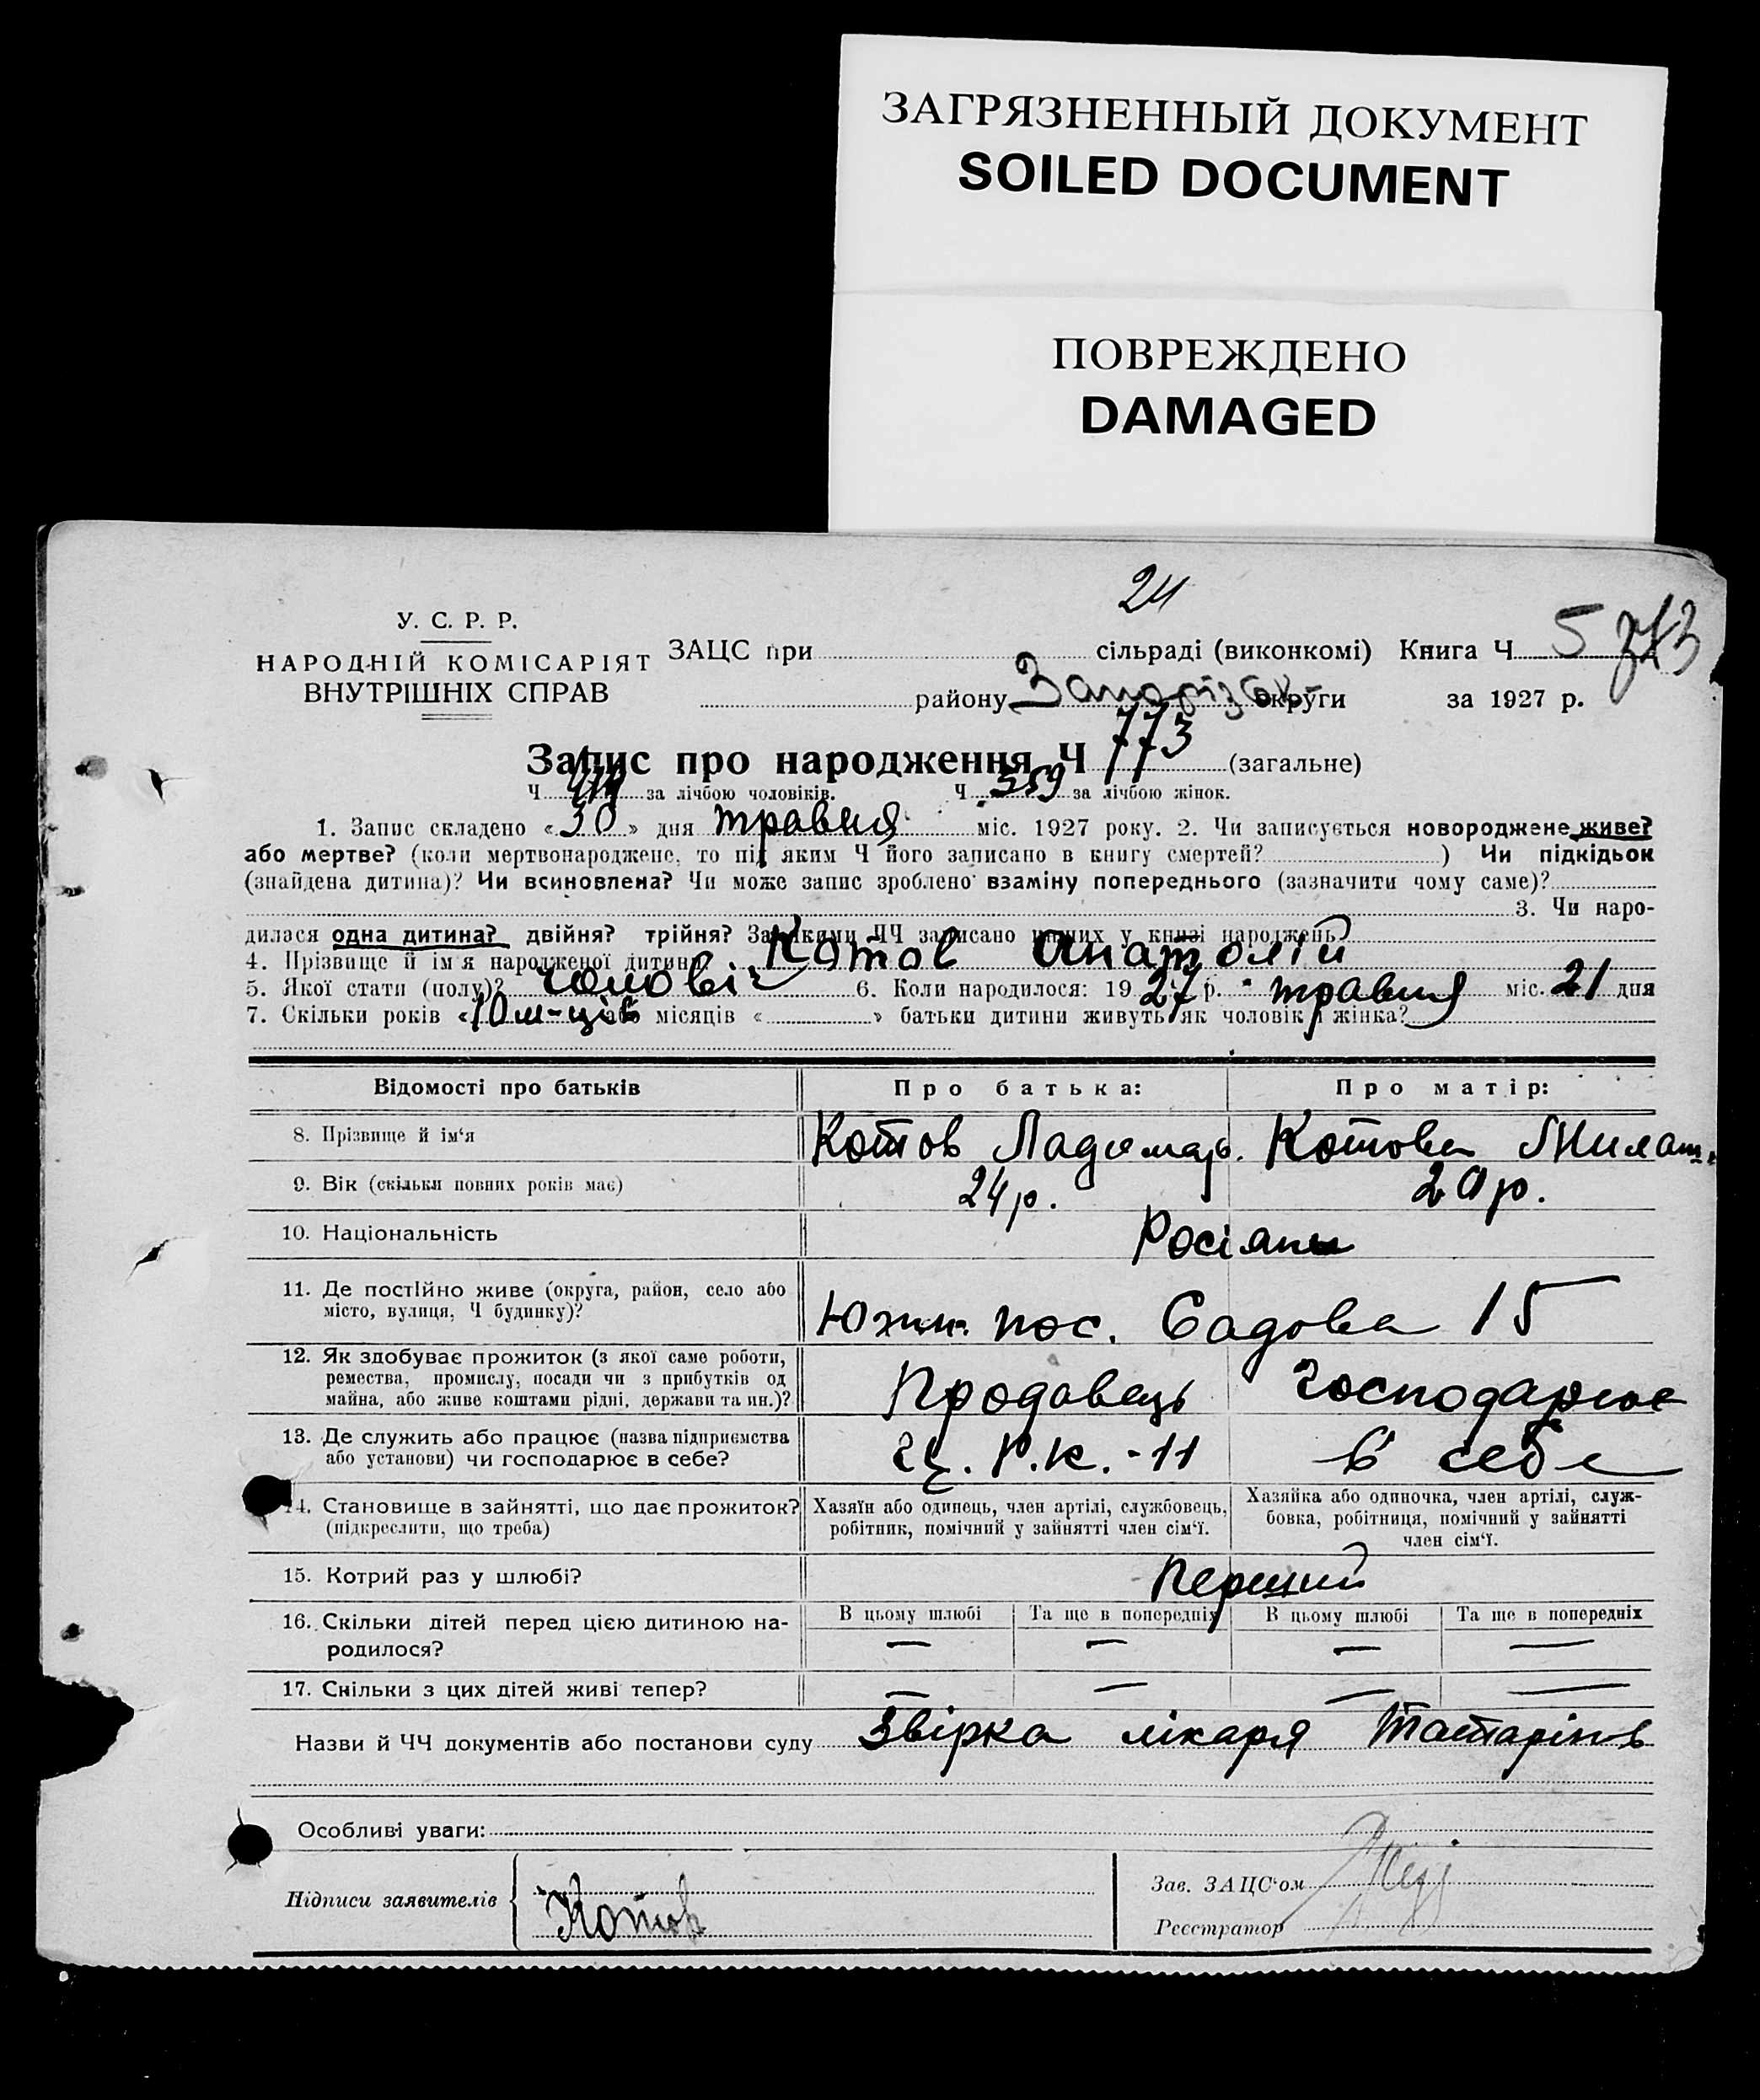 ЗАГРЯЗНЕННЫЙ ДОКУМЕНТ
SOILED DOCUMENT
ПОВРЕЖДЕНО
DAMAGED
24
У. С. Р. Р.
НАРОДНІЙ КОМІСАРІЯТ
ВНУТРІШНІХ СПРАВ
ЗАЦС при сільраді (виконкомі) Книга Ч 5 773
району Запорізьк. округи за 1927 р.
Запис про народження Ч 773 (загальне)
Ч 414 за лічбою чоловіків. Ч 359 за лічбою жінок.
1. Запис складено «30» дня травня міс. 1927 року. 2. Чи записується новороджене живе?
або мертве? (коли мертвонароджене, то під яким Ч його записано в книгу смертей? ) Чи підкідьок
(знайдена дитина)? Чи всиновлена? Чи може запис зроблено взаміну попереднього (зазначити чому саме)?
3. Чи наро-
дилася одна дитина? двійня? трійня? За якими ЧЧ записано инших у книзі народжень?
4. Прізвище й ім'я народженої дитини Котов Анатолій
5. Якої стати (полу)? чоловіч 6. Коли народилося: 1927 р. травня міс. 21 дня
7. Скільки років «10 м-ців або місяців « » батьки дитини живуть як чоловік і жінка?
Відомості про батьків Про батька: Про матір:
8. Прізвище й ім'я Котов Ладимар. Котова Милат.
9. Вік (скільки повних років має) 24 р. 20 р.
10. Національність Росіяни
11. Де постійно живе (округа, район, село або
місто, вулиця, Ч будинку)? Южн. пос. Садова 15
12. Як здобуває прожиток (з якої саме роботи,
ремества, промислу, посади чи з прибутків од
майна, або живе коштами рідні, держави та ин.)? Продавець господарює
13. Де служить або працює (назва підприємства
або установи) чи господарює в себе? Р.К. - 11 в себе
14. Становище в зайнятті, що дає прожиток?
(підкреслити, що треба)
Хазяїн або одинець, член артілі, службовець,
робітник, помічний у зайнятті член сім'ї.
Хазяйка або одиночка, член артілі, служ-
бовка, робітниця, помічний у зайнятті
член сім'ї.
15. Котрий раз у шлюбі? Перший
16. Скільки дітей перед цією дитиною на-
родилося?
В цьому шлюбі Та ще в попередніх В цьому шлюбі Та ще в попередніх
— — — —
17. Скільки з цих дітей живі тепер? — — — —
Назви й ЧЧ документів або постанови суду Звірка лікаря Татарінов
Особливі уваги:
Підписи заявителів Котов
Зав. ЗАЦС'ом
Реєстратор